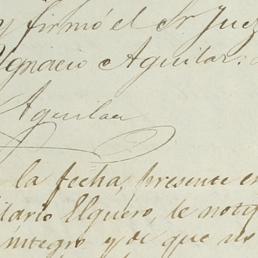 y firmó el Sr Juez
Ygnacio Aguilar.
Aguilar
la fecha, presente en
ilario Elguero, le notifi
integro y de que